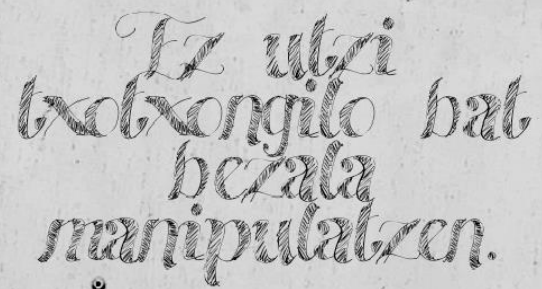 Ez utzi
txotxongilo bat
bezala
manipulatzen.